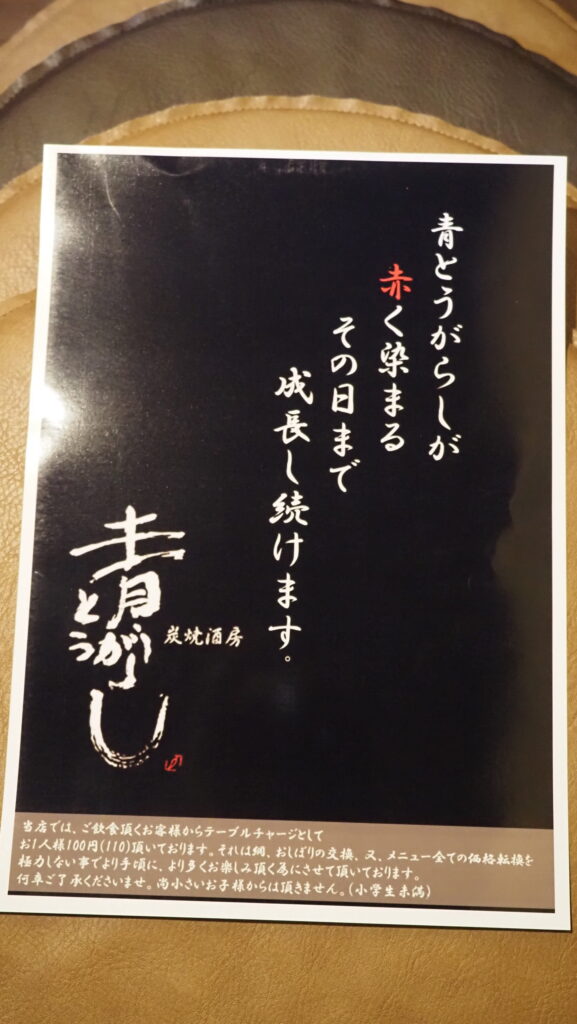 青とうがらしが
赤く染まる
その日まで
成長し続けます。
炭焼酒房
青とうがらし
当店では、ご飲食頂くお客様からテーブルチャージとして
お1人様100円(110)頂いております。それは網、おしぼりの交換、又、メニュー全ての価格転換を
極力しない事でより手頃に、より多くお楽しみ頂く為にさせて頂いております。
何卒ご了承くださいませ。尚小さいお子様からは頂きません。(小学生未満)